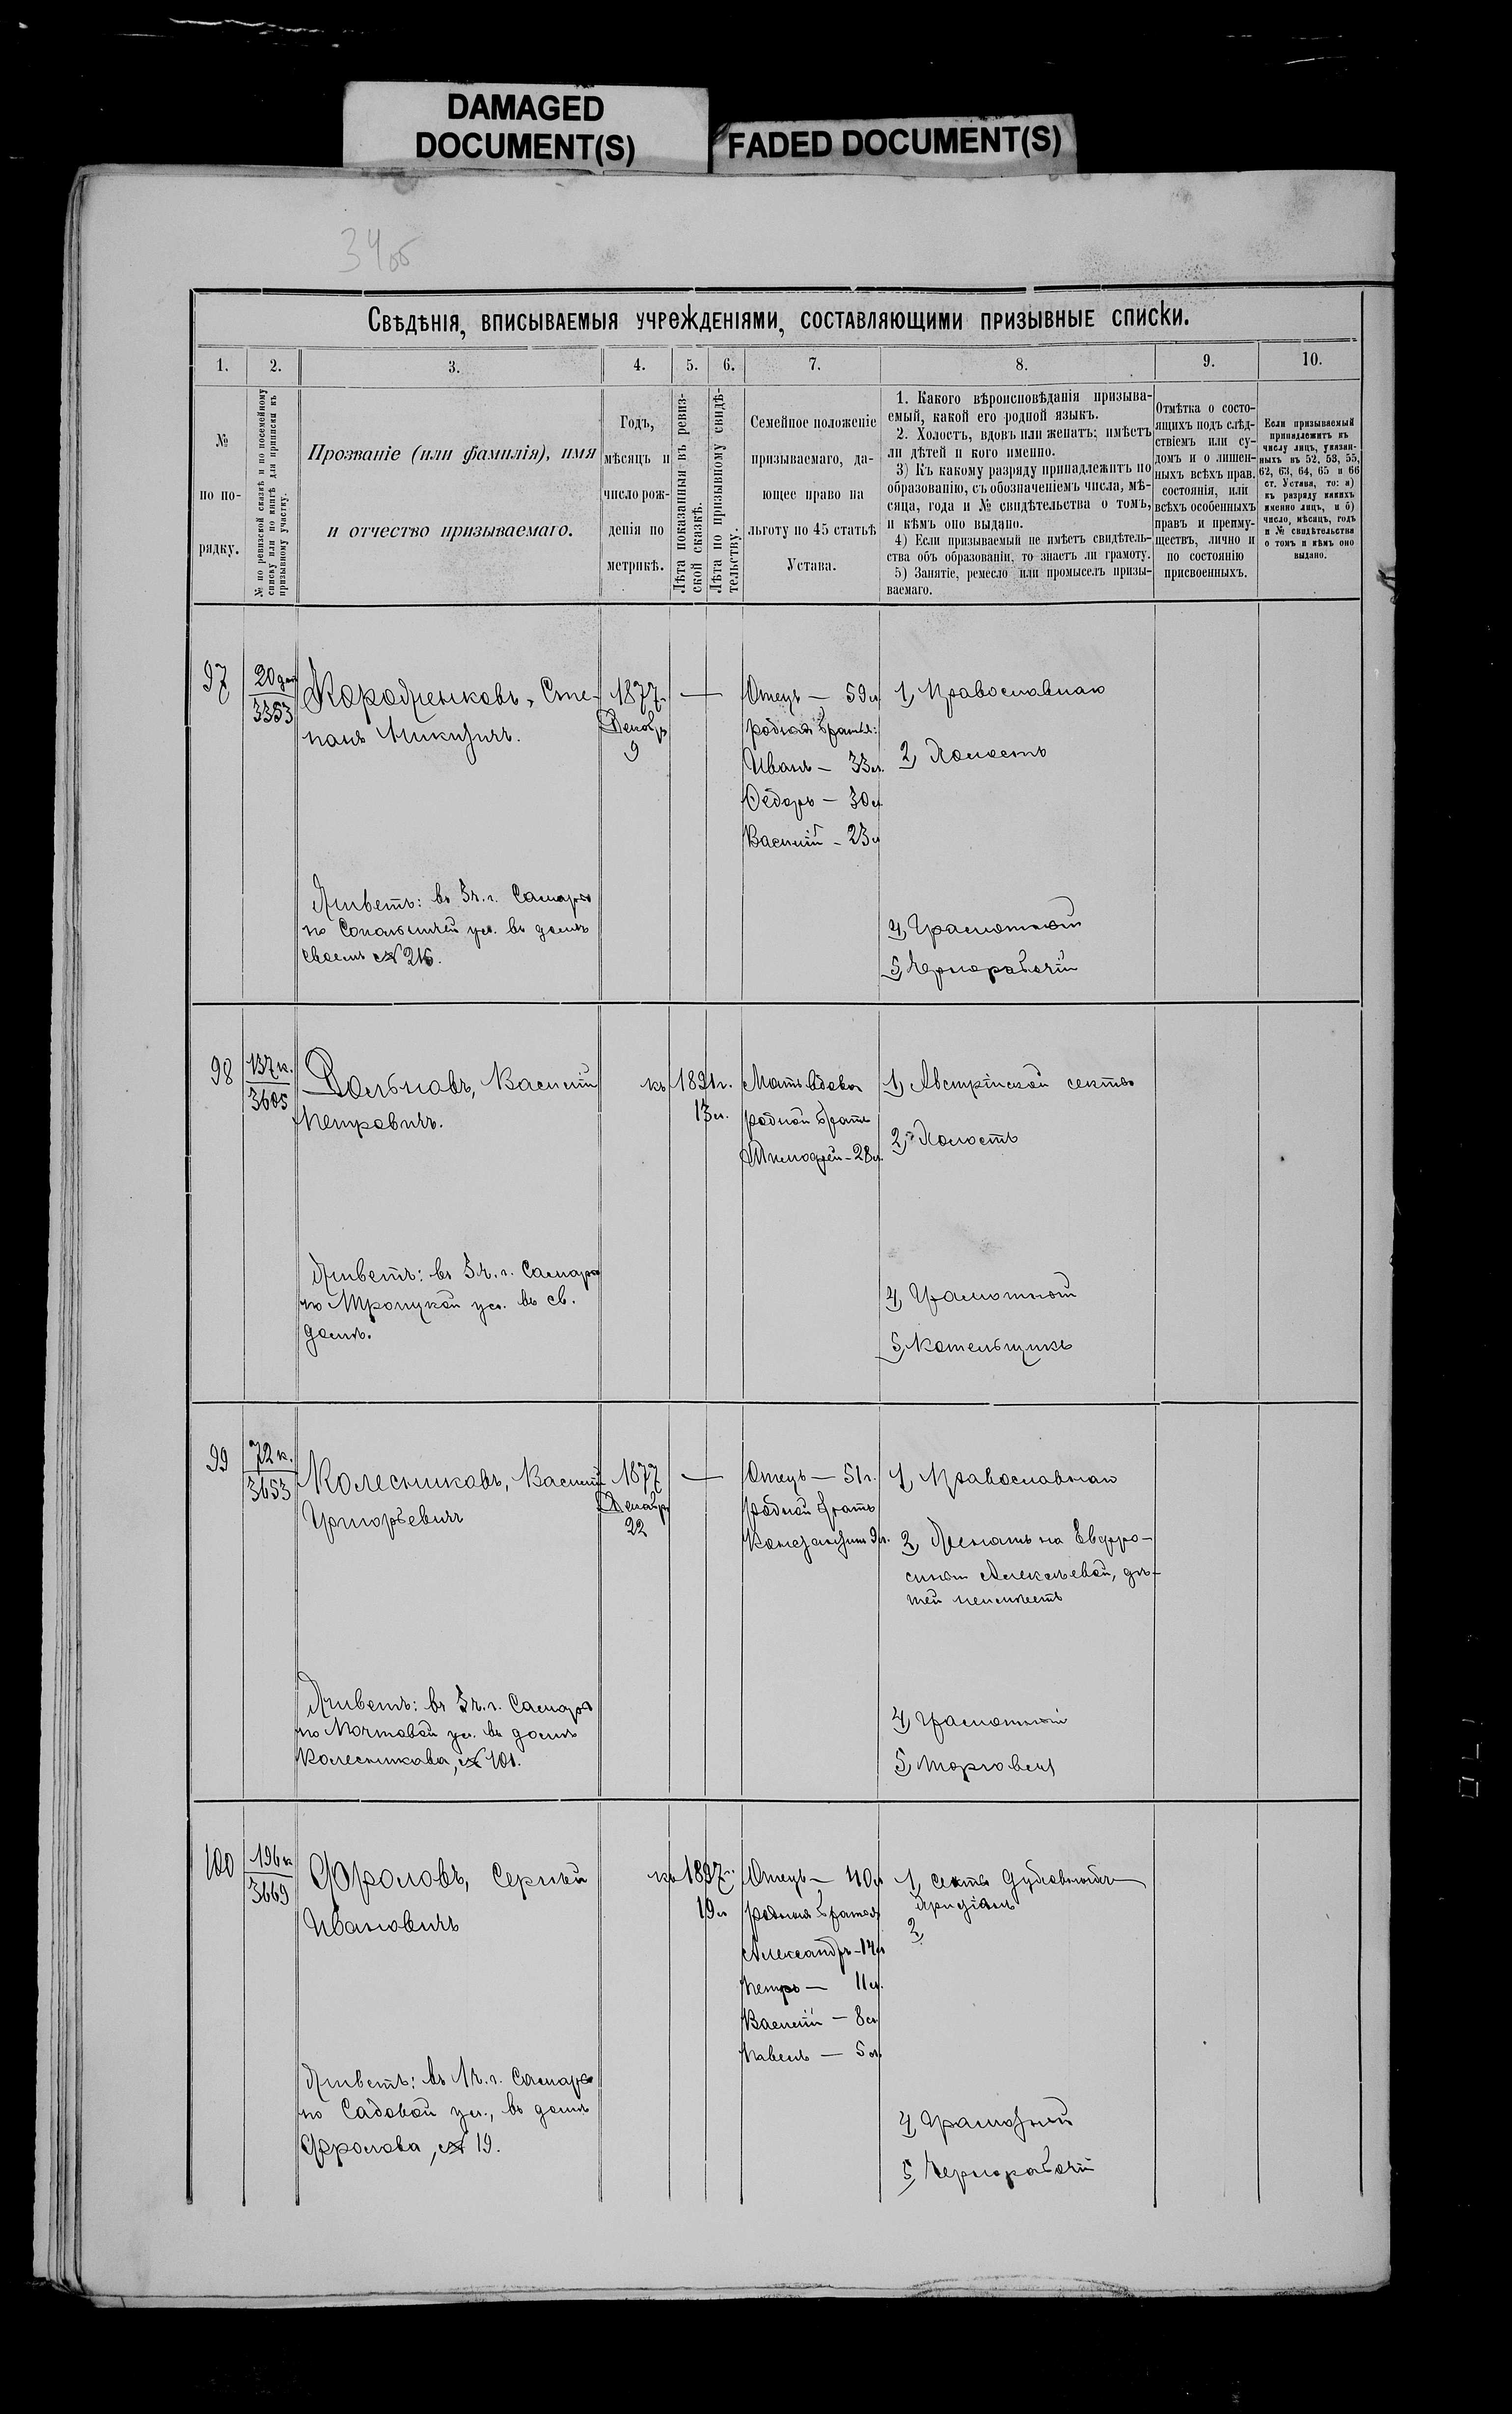 DAMAGED
DOCUMENT(S)
FADED DOCUMENT(S)
34об
Свѣдѣнія, вписываемыя учрежденіями, составляющими призывные списки.
1. 2. 3. 4. 5. 6. 7. 8. 9. 10.
№
по по-
рядку.
№ по ревизской сказкѣ и по посемейному
списку или по книгѣ для приписки къ
призывному участку.
Прозваніе (или фамилія), имя
и отчество призываемаго.
Годъ,
мѣсяцъ и
число рож-
денія по
метрикѣ.
Лѣта показанныя въ ревиз-
ской сказкѣ.
Лѣта по призывному свидѣ-
тельству.
Семейное положеніе
призываемаго, да-
ющее право на
льготу по 45 статьѣ
Устава.
1. Какого вѣроисповѣданія призыва-
емый, какой его родной языкъ.
2. Холостъ, вдовъ или женатъ; имѣетъ
ли дѣтей и кого именно.
3) Къ какому разряду принадлежитъ по
образованію, съ обозначеніемъ числа, мѣ-
сяца, года и № свидѣтельства о томъ,
и кѣмъ оно выдано.
4) Если призываемый не имѣетъ свидѣтель-
ства объ образованіи, то знаетъ ли грамоту.
5) Занятіе, ремесло или промыселъ призы-
ваемаго.
Отмѣтка о состо-
ящихъ подъ слѣд-
ствіемъ или су-
домъ и о лишен-
ныхъ всѣхъ прав.
состоянія, или
всѣхъ особенныхъ
правъ и преиму-
ществъ, лично и
по состоянію
присвоенныхъ.
Если призываемый
принадлежитъ къ
числу лицъ, указан-
ныхъ въ 52, 53, 55,
62, 63, 64, 65 и 66
ст. Устава, то: а)
къ разряду какихъ
именно лицъ, и б)
число, мѣсяцъ, годъ
и № свидѣтельства
о томъ и кѣмъ оно
выдано.
97
20
3353
Сте-
панъ Никитичъ.
Живетъ: въ 3 ч. г. Самары
по ул. въ домѣ
своемъ № 216.
1877
Декабр
9
Отецъ — 59 л
родныя братья:
Иванъ — 33 л.
Ѳедоръ — 30 л
Василій — 23 л
1, Православнаго
2, Холостъ
4, Грамотный
5, Чернорабочій
98
137 к.
3605
Дольновъ, Василій
Петровичъ.
Живетъ: въ 3 ч. г. Самары
по Троицкой ул. въ св.
домѣ.
къ 1891 г.
13 л.
Мать вдова
родной братъ
Тимофей — 28 л.
1, Австрійской секты
2, Холостъ
4, Грамотный
5, Котельщикъ
99
72 к.
3653
Колесниковъ, Василій
Григорьевичъ
Живетъ: въ 3 ч. г. Самары
по Почтовой ул. въ домѣ
Колесникова, № 101.
1877
Декабр
22
Отецъ — 51 г.
родной братъ
Константинъ 9 л.
1, Православнаго
2, Женатъ на Евфро-
синьи Алексѣевой, дѣ-
тей неимѣетъ
4, Грамотный
5, Торговецъ
100
196 к
3669
Фроловъ, Сергѣй
Ивановичъ
Живетъ: въ 1 ч. г. Самары
по Садовой ул., въ домѣ
Фролова, № 19.
къ 1897 г.
19 л
Отецъ — 40 л
родныя братья
Александръ — 14 л
Петръ — 11 л.
Василій — 8 л
Павелъ — 5 л.
1, Секты
2,
4, Грамотный
5, Чернорабочій